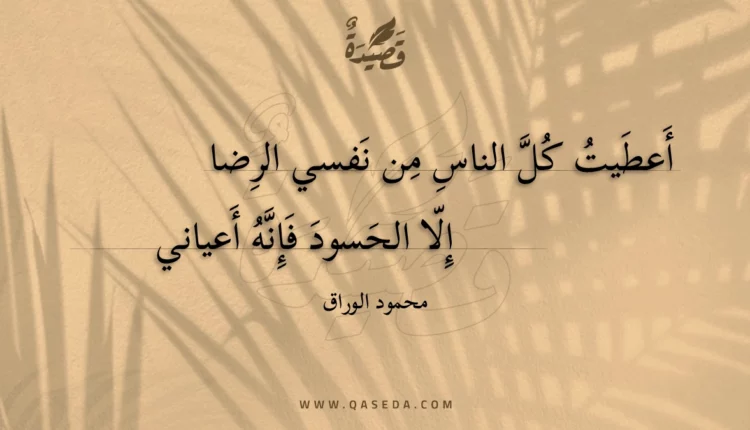 قَصِيْدَةٌ
أَعطَيتُ كُلَّ الناسِ مِن نَفسي الرِضا
إِلّا الحَسودَ فَإِنَّهُ أَعياني
محمود الوراق
WWW.QASEDA.COM